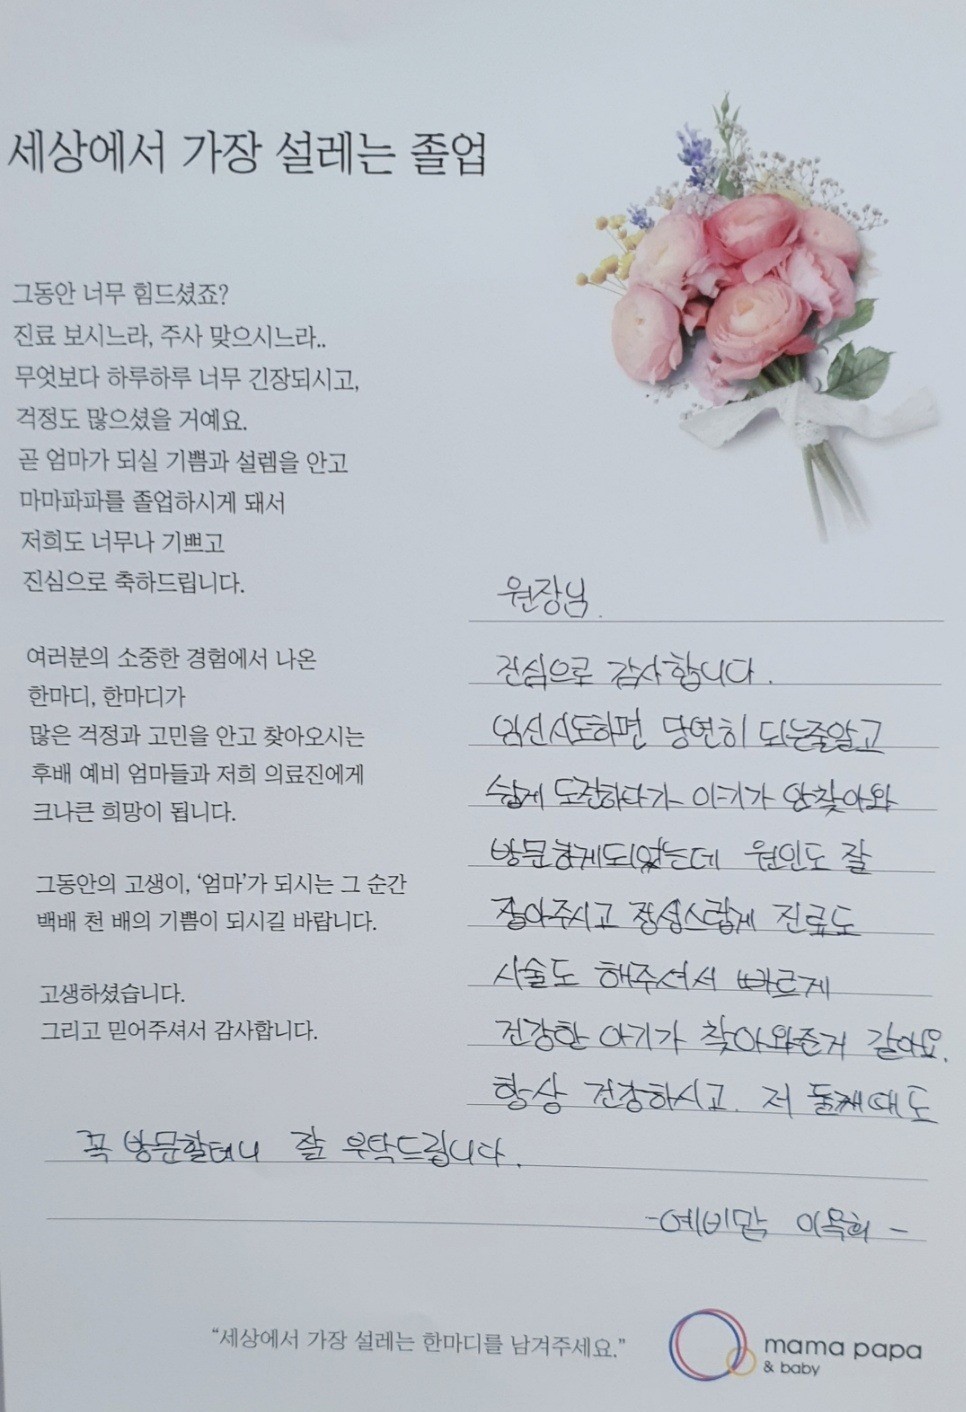 세상에서 가장 설레는 졸업
그동안 너무 힘드셨죠?
진료 보시느라, 주사 맞으시느라..
무엇보다 하루하루 너무 긴장되시고,
걱정도 많으셨을 거예요.
곧 엄마가 되실 기쁨과 설렘을 안고
마마파파를 졸업하시게 돼서
저희도 너무나 기쁘고
진심으로 축하드립니다.
여러분의 소중한 경험에서 나온
한마디, 한마디가
많은 걱정과 고민을 안고 찾아오시는
후배 예비 엄마들과 저희 의료진에게
크나큰 희망이 됩니다.
그동안의 고생이, '엄마'가 되시는 그 순간
백배 천 배의 기쁨이 되시길 바랍니다.
고생하셨습니다.
그리고 믿어주셔서 감사합니다.
원장님.
진심으로 감사합니다.
임신시도하면 당연히 되는줄알고
쉽게 도전하다가 아기가 안찾아와
방문하게되었는데 원인도 잘
잡아주시고 정성스럽게 진료도
시술도 해주셔서 빠르게
건강한 아기가 찾아와준거 같아요.
항상 건강하시고. 저 둘째때도
꼭 방문할테니 잘 부탁드립니다.
-예비맘 이옥희-
“세상에서 가장 설레는 한마디를 남겨주세요.”
mama papa
& baby